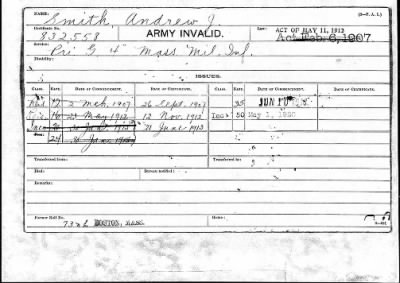 NAME: Smith, Andrew J. (3—F. A. I.)
Certificate No. 832,558 ARMY INVALID. Law: ACT OF MAY 11, 1912
Act Feb. 6, 1907.
Service: Pri G 4" Mass Mil. Inf.
Disability:
ISSUES.
CLASS. RATE. DATE OF COMMENCEMENT. DATE OF CERTIFICATE. CLASS. RATE. DATE OF COMMENCEMENT. DATE OF CERTIFICATE.
12 2 Mch, 1907 26 Sept. 1907 35 JUN
23 May 1912 12 Nov. 1912 Inc 50 May 1, 1920
1913 21 June 1913
24
Transferred from: Transferred to:
Died: Bureau notified:
Remarks:
Former Roll No. 7326 BOSTON, MASS. Home: